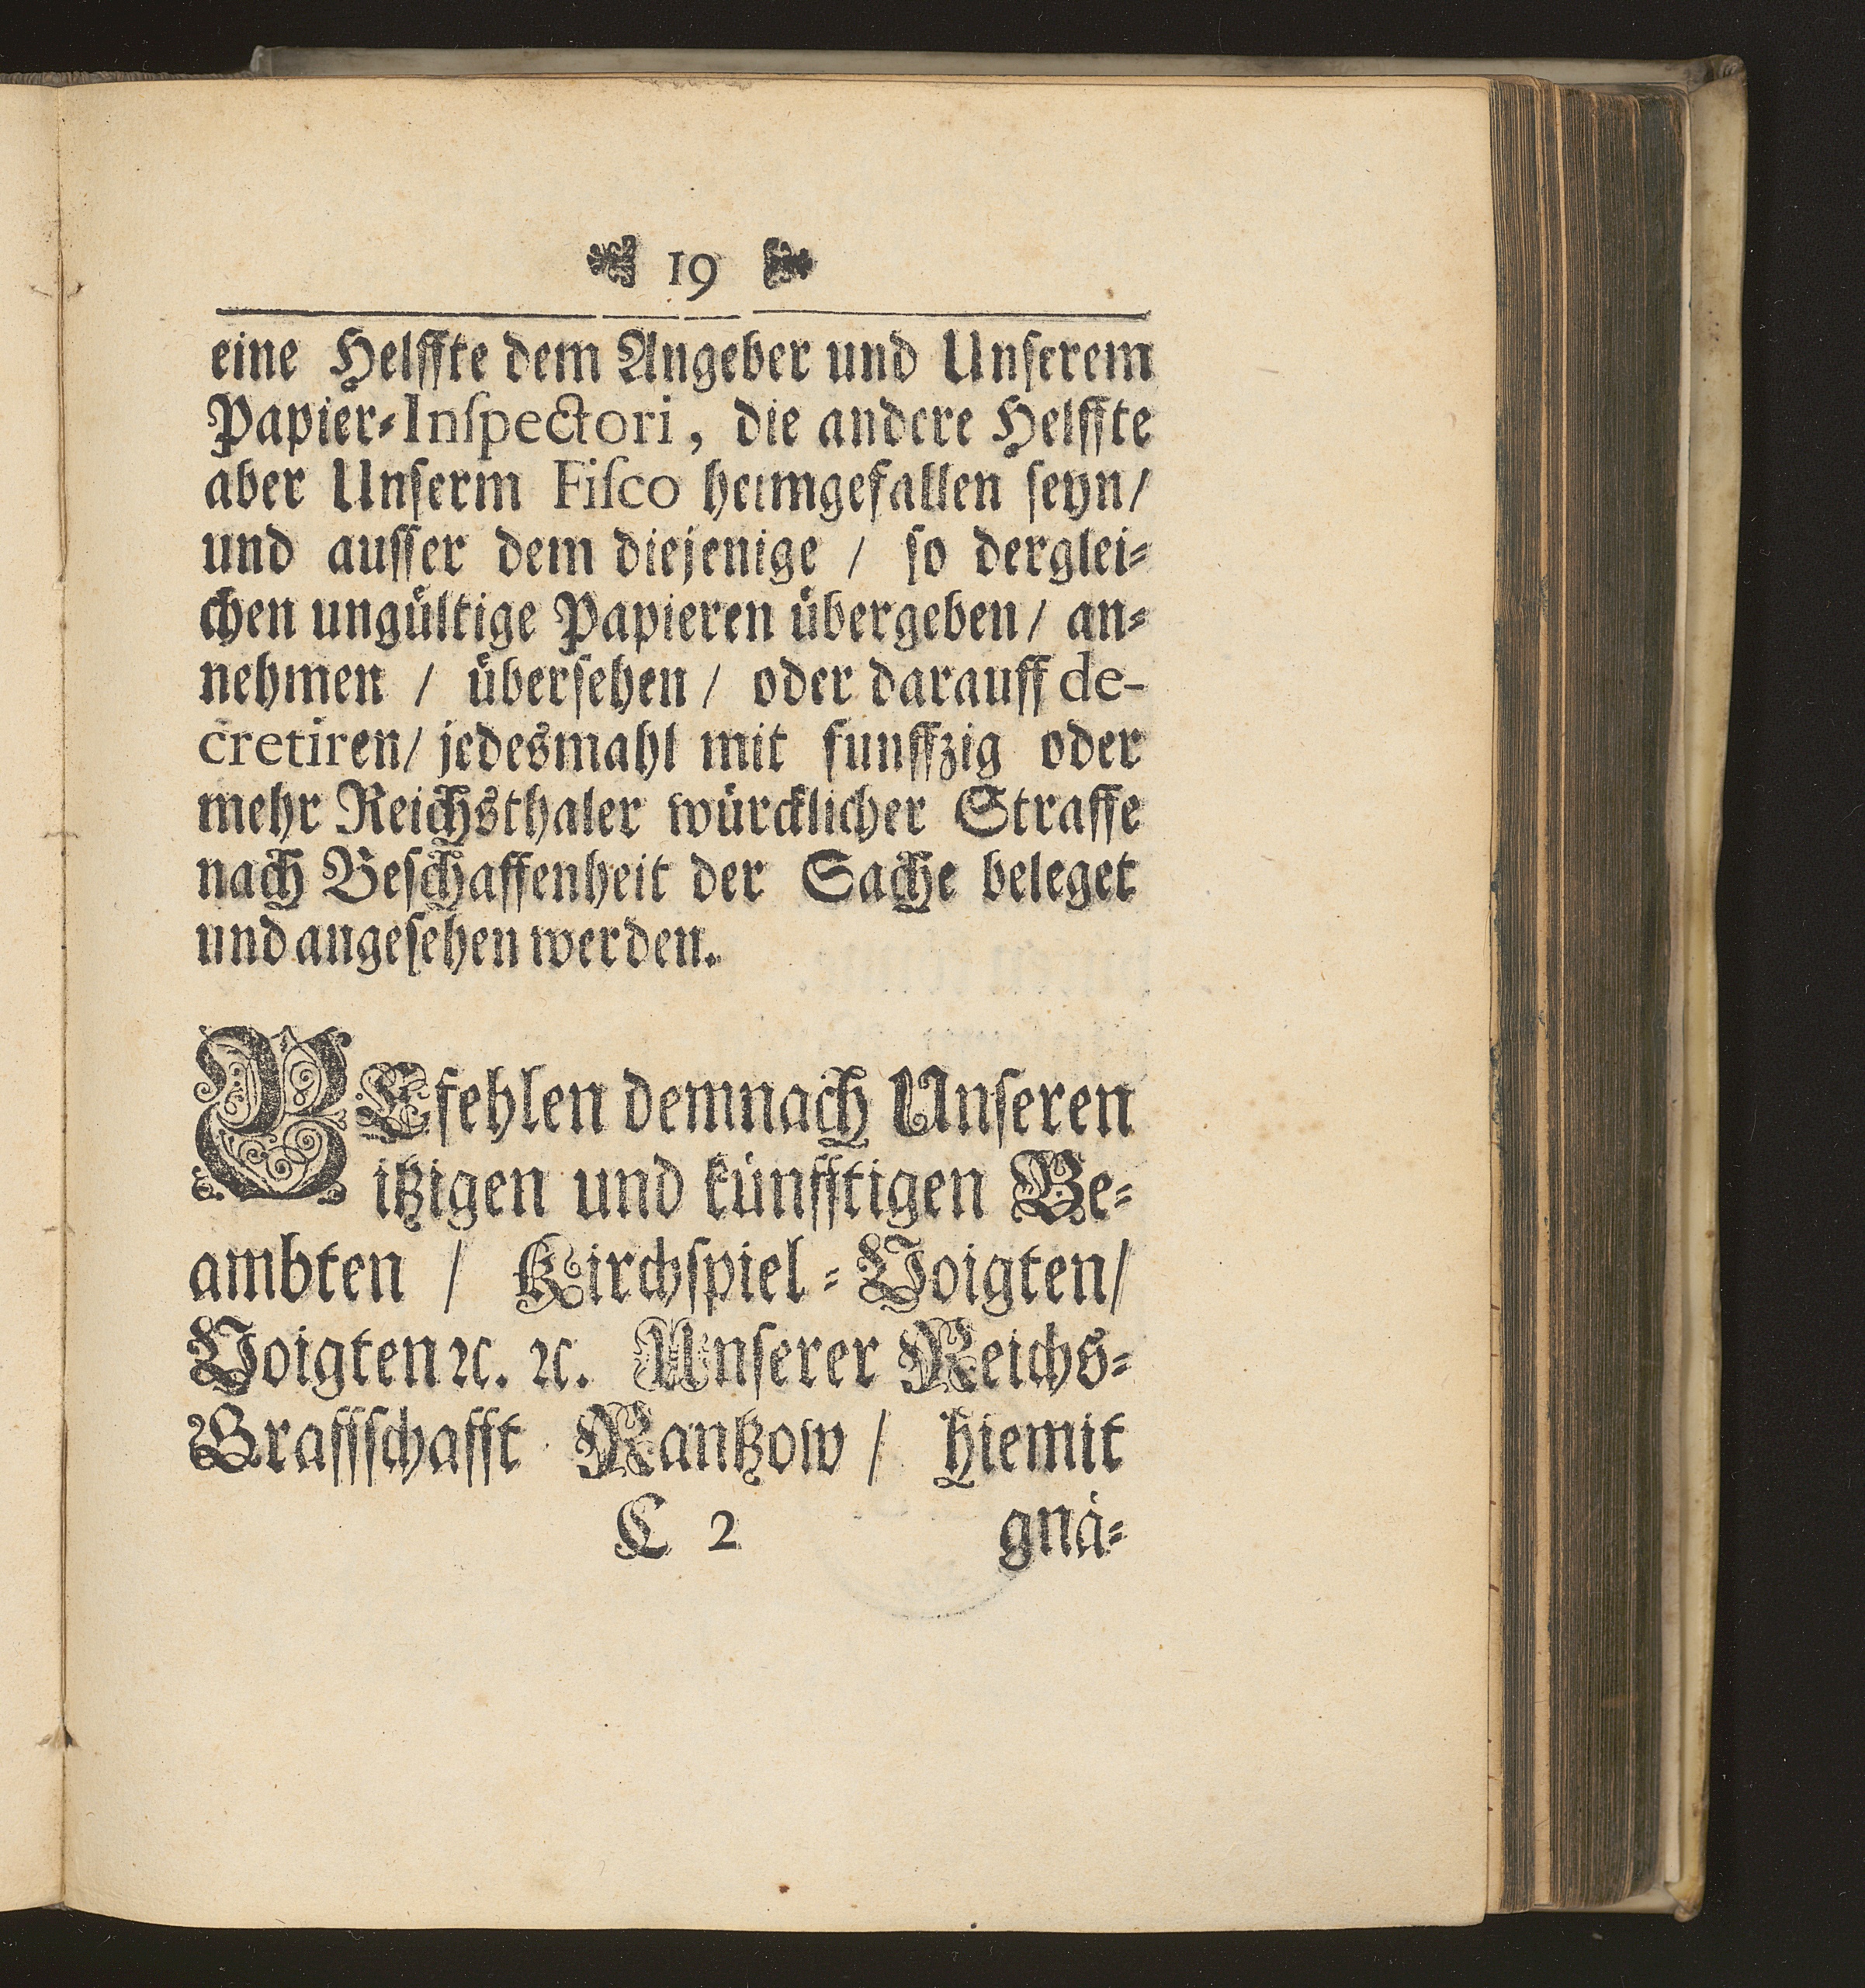 19
eine Helffte dem Angeber und Unſerem
Papier-Inſpectori, die andere Helffte
aber Unſerm Fiſco heimgefallen ſeyn/
und auſſer dem diejenige / ſo derglei-
chen ungültige Papieren übergeben/ an-
nehmen / überſehen/ oder darauff de-
cretiren/ jedesmahl mit funffzig oder
mehr Reichsthaler würcklicher Straffe
nach Beſchaffenheit der Sache beleget
und angeſehen werden.
BEfehlen demnach Unſeren
itzigen und künfftigen Be-
ambten / Kirchſpiel-Voigten/
Voigten ꝛc. ꝛc. Unſerer Reichs-
Graffſchafft Rantzow / hiemit
C 2 gnä-